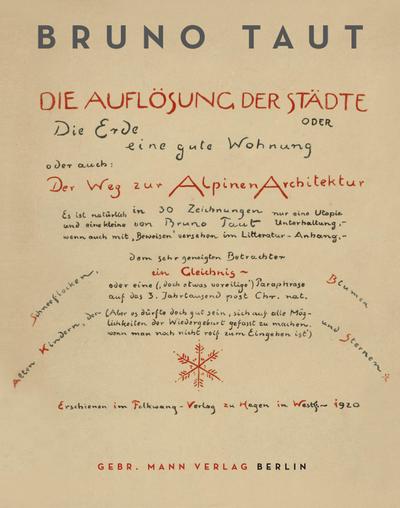 BRUNO TAUT
DIE AUFLÖSUNG DER STÄDTE
ODER
Die Erde
eine gute Wohnung
oder auch:
Der Weg zur Alpinen Architektur
Es ist natürlich in 30 Zeichnungen nur eine Utopie
und eine kleine von Bruno Taut Unterhaltung,-
wenn auch mit „Beweisen" versehen im Litteratur-Anhang.-
dem sehr geneigten Betrachter
ein Gleichnis ~
oder eine (, doch etwas voreilige) Paraphrase
auf das 3. Jahrtausend post Chr. nat.
(Aber es dürfte doch gut sein, sich auf alle Mög-
lichkeiten der Wiedergeburt gefasst zu machen,
wenn man noch nicht reif zum Eingehen ist)
Allen Kindern, der Schneeflocken,
Blumen und Sternen
Erschienen im Folkwang-Verlag zu Hagen in Westf. ~ 1920
GEBR. MANN VERLAG BERLIN